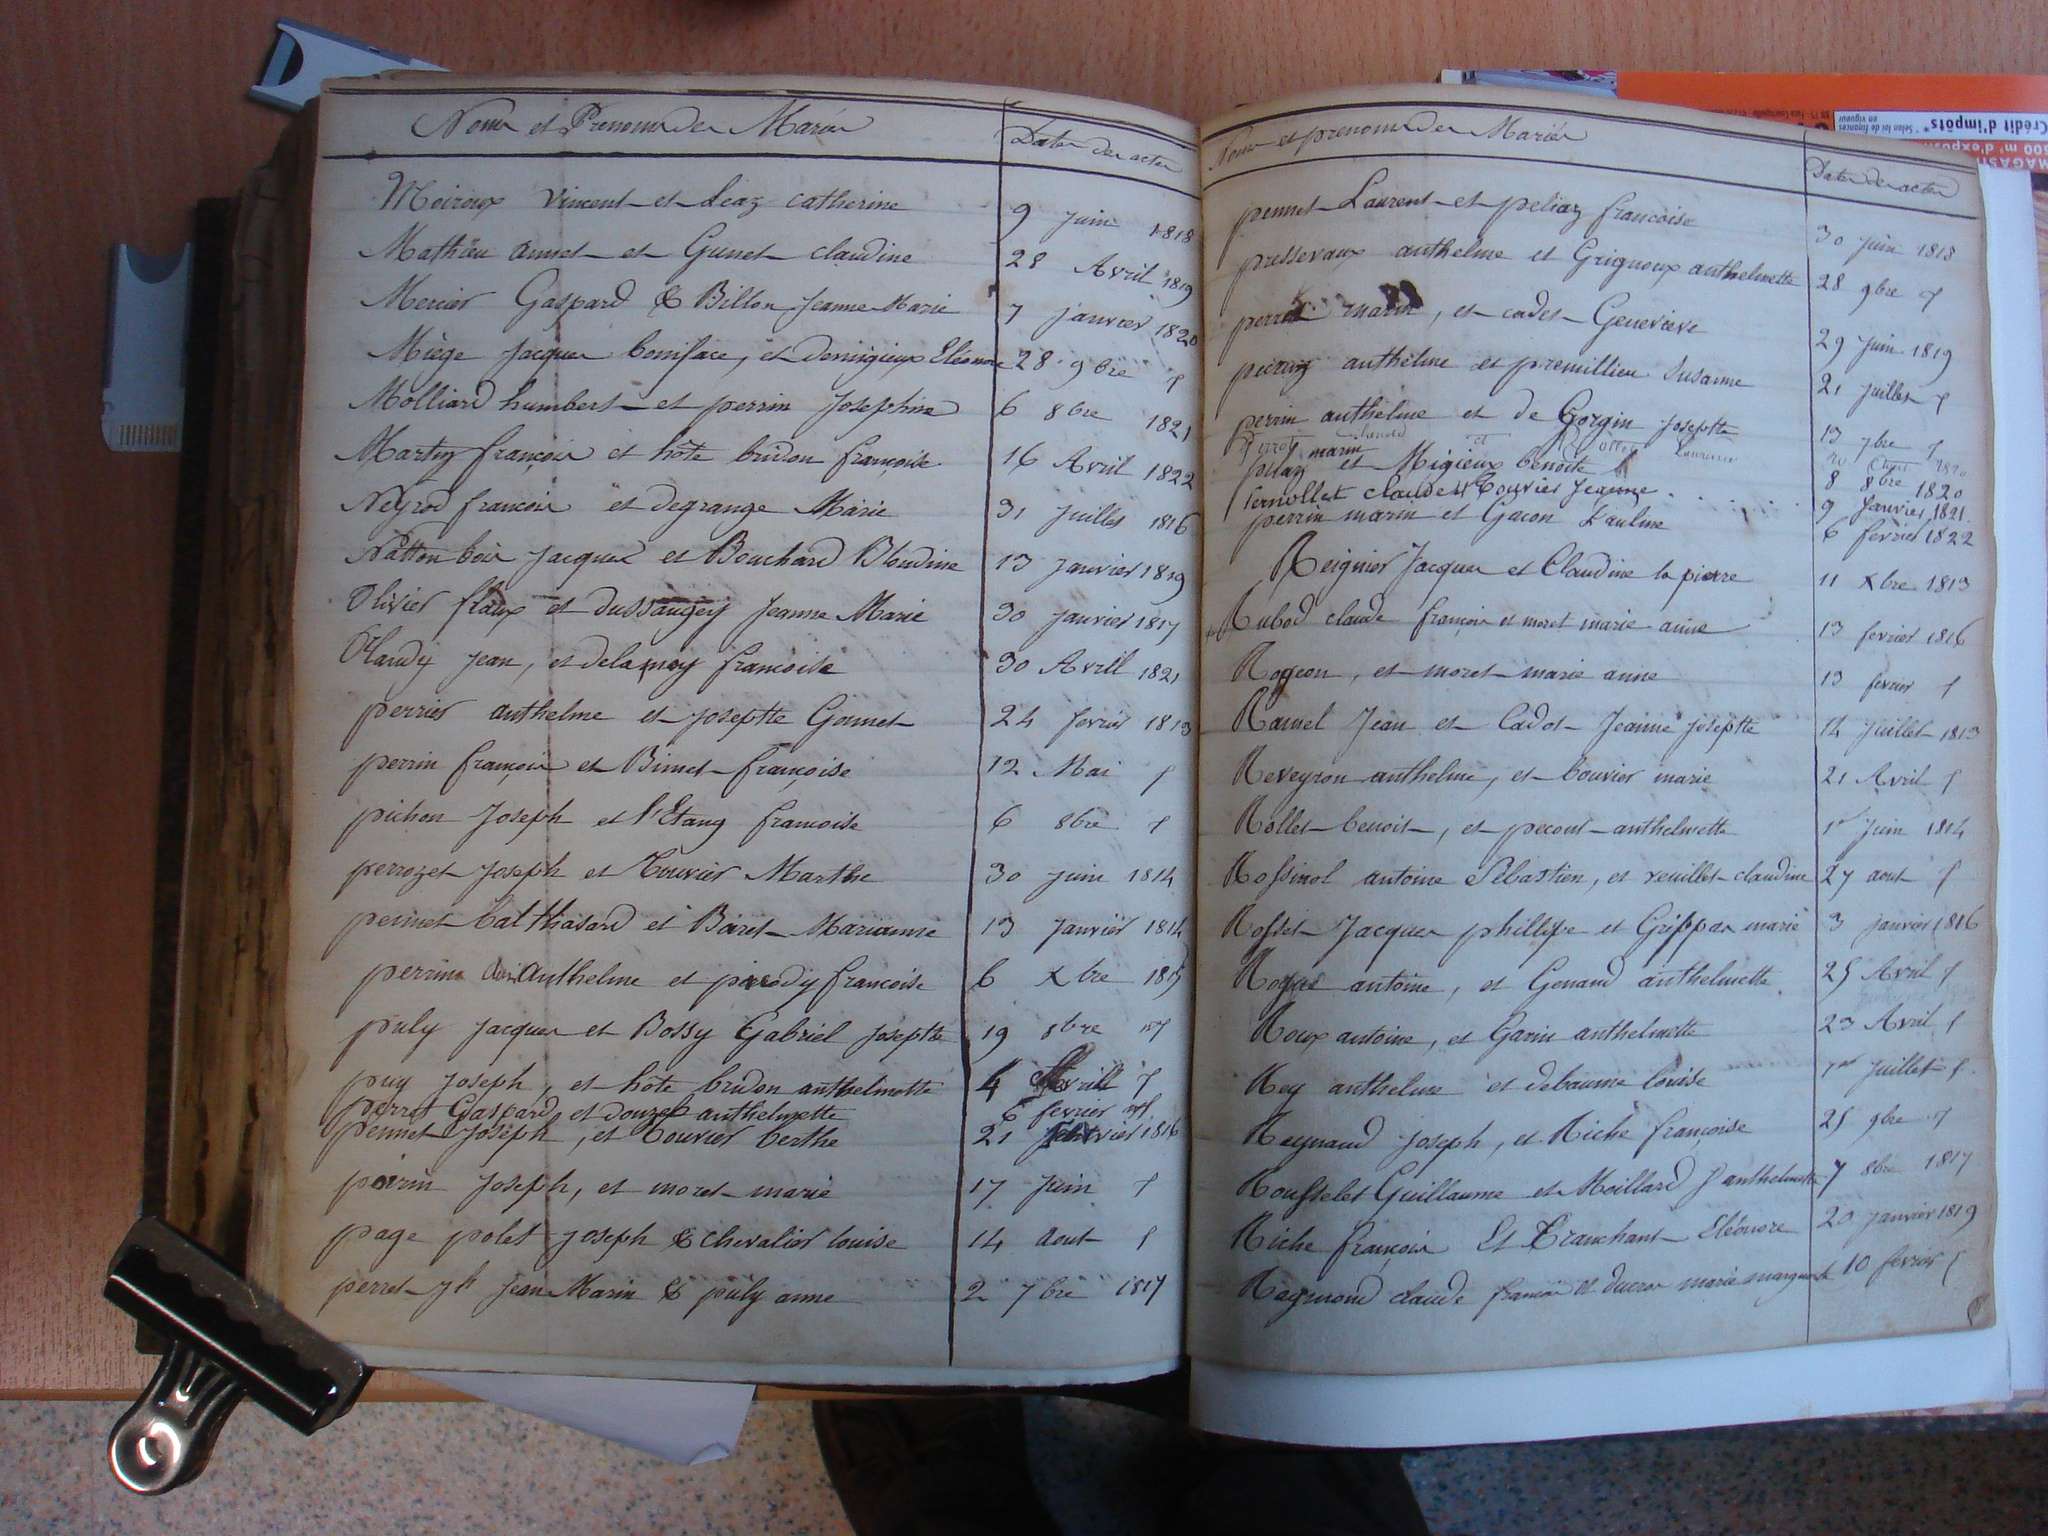 Noms et Prenoms des Mariés
Dates des actes
Meiroux Vincent et Leaz catherine 9 Juin 1818
Mathieu annet et Gunet claudine 28 Avril 1819
Mercier Gaspard & Billon Jeanne Marie 7 janvier 1820
Miège Jacques boniface, et demigieux Eléonore 28 9bre
Molliard humbert et perrin Josephine 6 8bre 1821
Martin françois et hôte bridon françoise 16 Avril 1822
Neyrod francois et degrange Marie 31 juillet 1816
Natton bois Jacques et Bouchard Blondine 13 Janvier 1819
Olivier flaux et dussaugey Jeanne Marie 30 Janvier 1817
Olandy Jean, et delamay francoise 30 Avril 1821
perrier anthelme et Josephte Gonnet 24 fevrier 1813
perrin françois et Binet françoise 12 Mai
pichon Joseph et l'Etang francoise 6 8bre
perrozet Joseph et Bouvier Marthe 30 Juin 1814
pennet balthasard et Boiret Marianne 13 Janvier 1814
perrin Anthelme et francoise 6 Xbre 1815
puly Jacques et Bossy Gabriel Josephte 19 8bre
puy Joseph, et hôte bridon anthelmette 4 Avril
perret Gaspard, et douzel anthelmette 6 fevrier
pennet Joseph, et bouvier berthe 21 1816
perrin Joseph, et moret marie 17 Juin
page polet Joseph & chevalier louise 14 Aout
perret Jh Jean Marin & puly anne 2 7bre 1817
Noms et prenoms des Mariés
Dates des actes
pennet Laurent et peliaz francoise 30 Juin 1818
pressevaux anthelme et Grignoux anthelmette 28 9bre
marin, et cadet Genevieve 29 Juin 1819
anthelme et premillieu Susanne 21 Juillet
perrin anthelme et de Gorgin Josephte 13 7bre
Perrot marin et Rollet Laurence 1820
pilaz et Migieux benoite 8 8bre 1820
Pernollet claude et Bouvier Jeanne 9 Janvier 1821
perrin marin et Gacon Pauline 6 fevrier 1822
Reignier Jacques et Claudine la pierre 11 Xbre 1813
Rubod claude françois et moret marie anne 13 fevrier 1816
Rogeon, et moret marie anne 13 fevrier
Ramel Jean et Cadot Jeanne Josephte 14 Juillet 1813
Reveyron anthelme, et bouvier marie 21 Avril
Rollet benoit, et pecout anthelmette 1er Juin 1814
Rossinol antoine Sébastien, et reuillet claudine 27 aout
Rosset Jacques phillipe et Grippas marie 3 Janvier 1816
Roque antoine, et Genand anthelmette 25 Avril
Roux antoine, et Garin anthelmette 23 Avril
Rey anthelme et debaume louise 1er Juillet
Reynaud Joseph, et Riche françoise 25 9bre
Rousselet Guillaume et Moillard J anthelmette 7 8bre 1817
Riche françois Et Tranchant Eléonore 20 Janvier 1819
Raymond claude francois et ducros marie marguerite 10 fevrier
Crédit d'impôts*